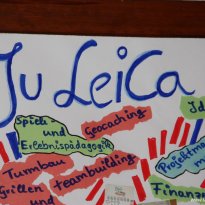 JuLeiCa
Spiel-
und
Erlebnispädagogik
Geocaching
Turmbau
Teambuilding
Grillen
und
Finanz